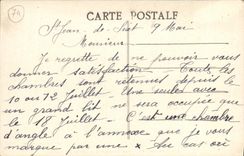 74
CARTE POSTALE
St Jean-de-Sixt 9 Mai
Monsieur
Je regrette de ne pouvoir vous
donner satisfaction - Toute les
chambres sont retenues depuis le
10 ou 12 Juillet. Une seules avec
un grand lit ne sera occupée que
le 18 Juillet - C'est une chambre
d'angle à l'annexe que je vous
marque par une x Au cas où